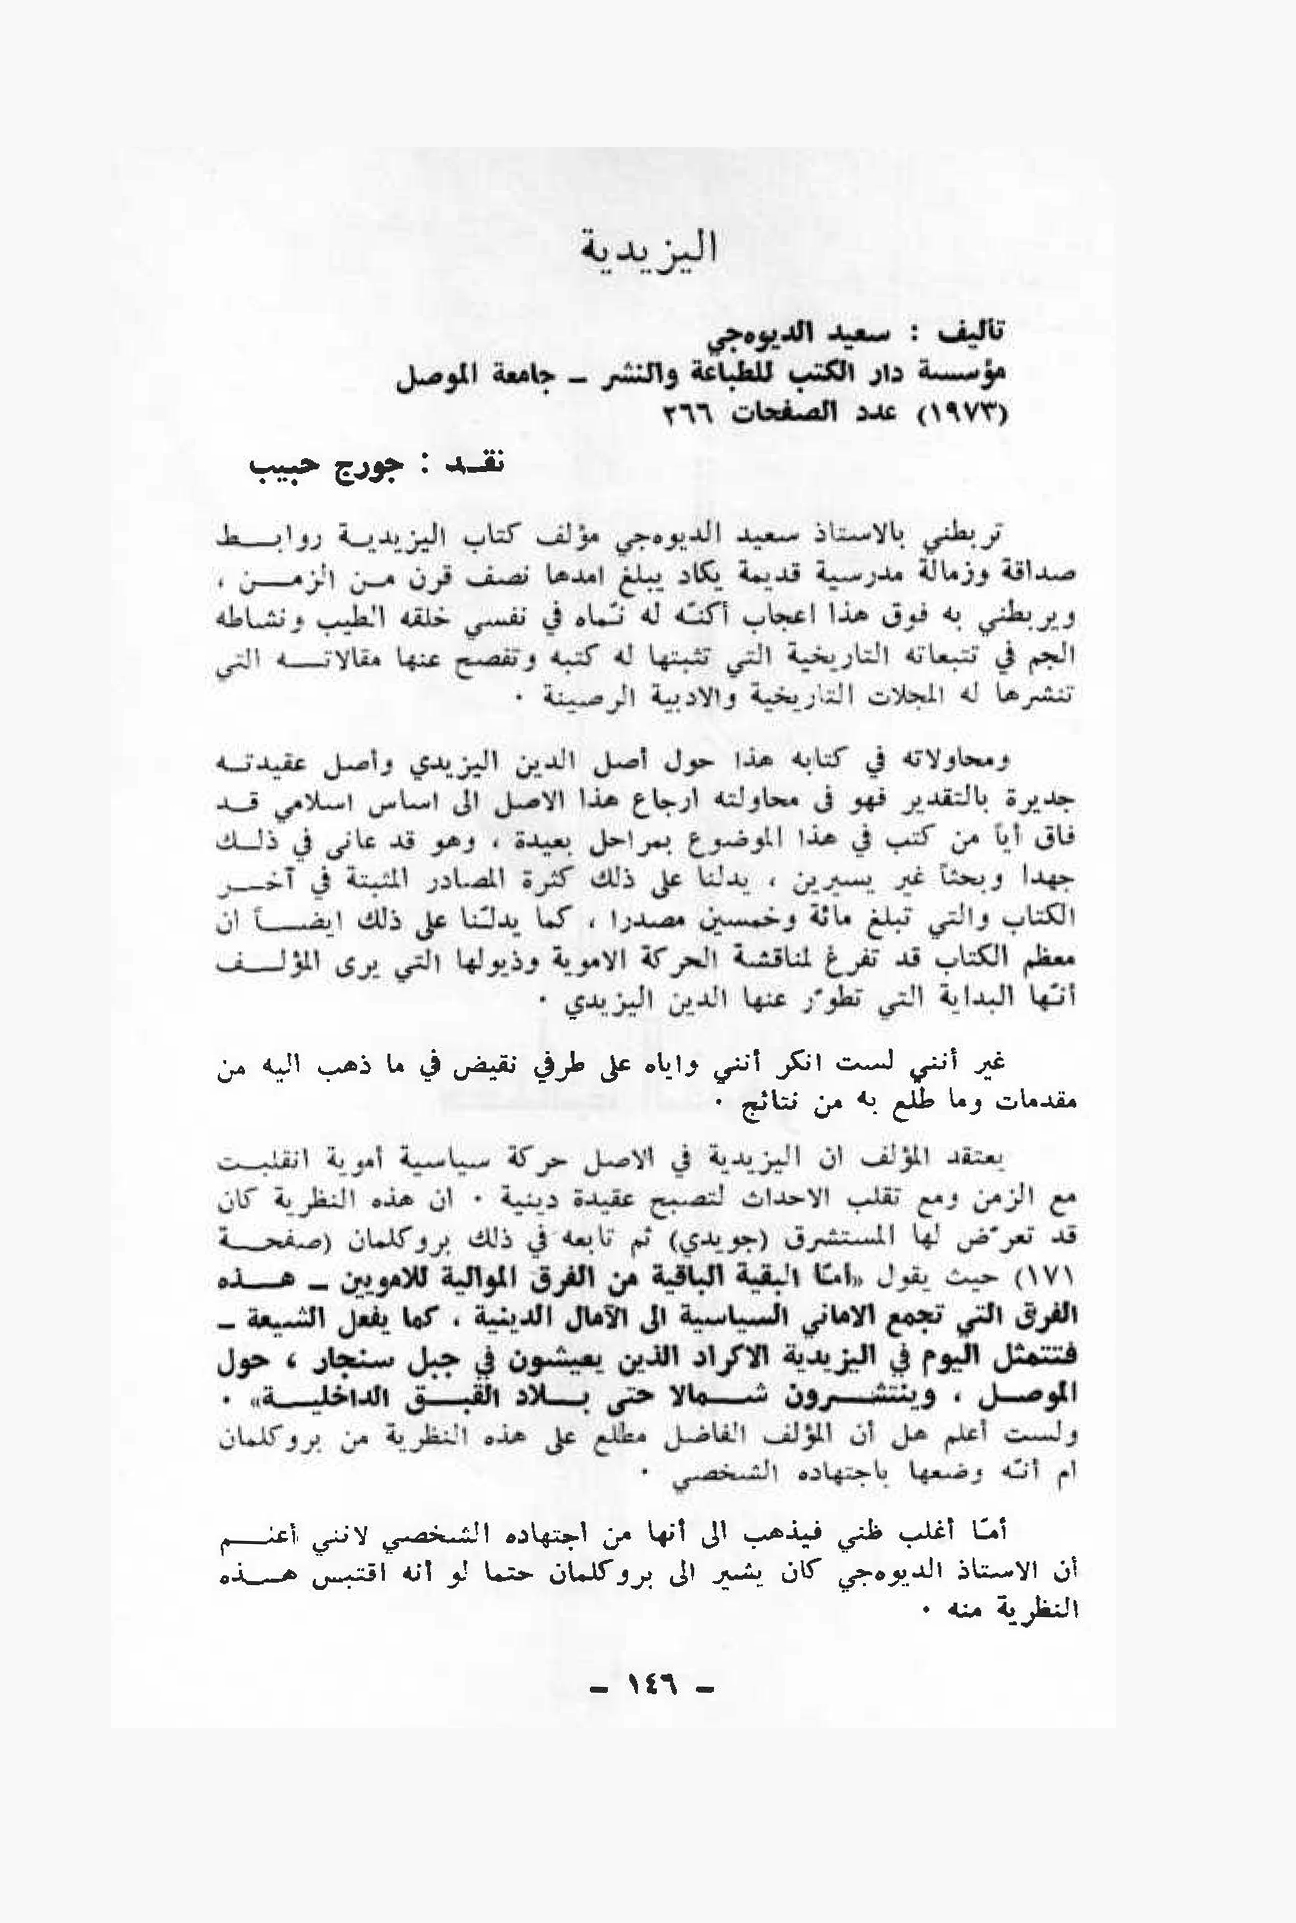 اليزيدية
تأليف : سعيد الديوهجي
مؤسسة دار الكتب للطباعة والنشر ــ جامعة الموصل
(١٩٧٣) عدد الصفحات ٢٦٦
نقــد : جورج حبيب
تربطني بالاستاذ سعيد الديوهجي مؤلف كتاب اليزيديـة روابـــط
صداقة وزمالة مدرسية قديمة يكاد يبلغ امدها نصف قرن مـن الزمـــن ،
ويربطني به فوق هذا اعجاب أكنّه له نمّاه في نفسي خلقه الطيب ونشاطه
الجم في تتبعاته التاريخية التي تثبتها له كتبه وتفصح عنها مقالاتـــه التي
تنشرها له المجلات التاريخية والادبية الرصينة ٠
ومحاولاته في كتابه هذا حول أصل الدين اليزيدي وأصل عقيدتـه
جديرة بالتقدير فهو فى محاولته ارجاع هذا الاصل الى اساس اسلامي قـد
فاق أياً من كتب في هذا الموضوع بمراحل بعيدة ، وهو قد عانى في ذلـك
جهدا وبحثاً غير يسيرين ، يدلنا على ذلك كثرة المصادر المثبتة في آخـــر
الكتاب والتي تبلغ مائة وخمسين مصدرا ، كما يدلـّنا على ذلك ايضـــاً ان
معظم الكتاب قد تفرغ لمناقشة الحركة الاموية وذيولها التي يرى المؤلـــف
أنـّها البداية التي تطوّر عنها الدين اليزيدي ٠
غير أنني لست انكر أنني واياه على طرفي نقيض في ما ذهب اليه من
مقدمات وما طلّع به من نتائج ٠
يعتقد المؤلف ان اليزيدية في الاصل حركة سياسية أموية انقلبـت
مع الزمن ومع تقلب الاحداث لتصبح عقيدة دينية ٠ ان هذه النظرية كان
قد تعرّض لها المستشرق (جويدي) ثم تابعه في ذلك بروكلمان (صفحـــة
١٧١) حيث يقول «امـّا البقية الباقية من الفرق الموالية للامويين ــ هـــذه
الفرق التي تجمع الاماني السياسية الى الآمال الدينية ، كما يفعل الشيعة ــ
فتتمثل اليوم في اليزيدية الاكراد الذين يعيشون في جبل سنجار ، حول
الموصـل ، وينتشـــرون شـــمالا حتى بـــلاد القبـــق الداخليـــة» ٠
ولست أعلم هل أن المؤلف الفاضل مطلع على هذه النظرية من بروكلمان
ام أنـّه وضعها باجتهاده الشخصي ٠
أمـّا أغلب ظني فيذهب الى أنها من اجتهاده الشخصي لانني أعنـــم
أن الاستاذ الديوهجي كان يشير الى بروكلمان حتما لو أنه اقتبس هـــذه
النظرية منه ٠
ــ ١٤٦ ــ